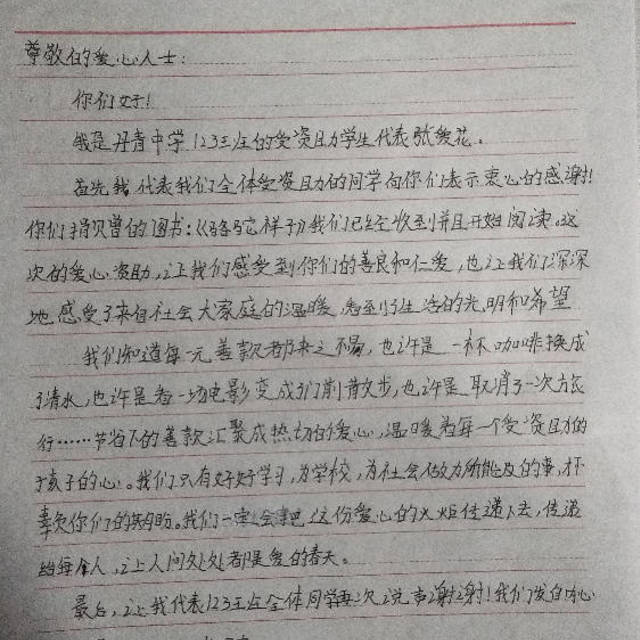 尊敬的爱心人士:
你们好!
我是丹青中学123班的受资助学生代表张爱花。
首先我代表我们全体受资助的同学向你们表示衷心的感谢!
你们捐赠的图书:《骆驼祥子》我们已经收到并且开始阅读。这
次的爱心资助,让我们感受到你们的善良和仁爱,也让我们深深
地感受了来自社会大家庭的温暖,看到了生活的光明和希望
我们知道每一元善款都来之不易,也许是一杯咖啡换成
了清水,也许是看一场电影变成了门前散步,也许是取消了一次旅
行……节省下的善款汇聚成热切的爱心,温暖着每一个受资助的
孩子的心。我们只有好好学习,为学校,为社会做力所能及的事,才不
辜负你们的期盼。我们一定会把这份爱心的火炬传递下去,传递
给每个人,让人间处处都是爱的春天。
最后,让我代表123班全体同学再次说声谢谢!我们发自内心